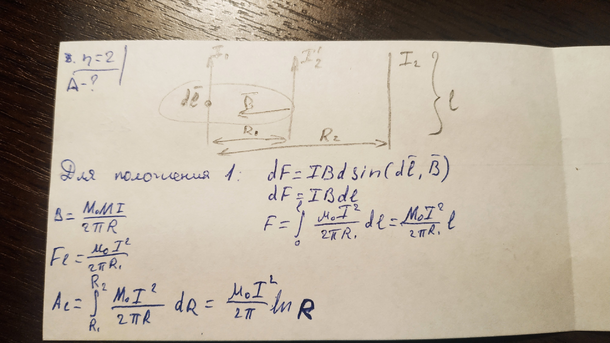 в. n=2
A-?
I₁ I₂' I₂
dl̄ B̄ l
R₁
R₂
Для положения 1: dF=IBdsin(dl̄, B̄)
dF=IBdl
B=μ₀MI/2πR₁ F=∫₀ˡ μ₀I²/2πR₁ dl=μ₀I²/2πR₁ l
Fl=μ₀I²/2πR₁
Al=∫_R₁^R₂ μ₀I²/2πR dR=μ₀I²/2π ln R